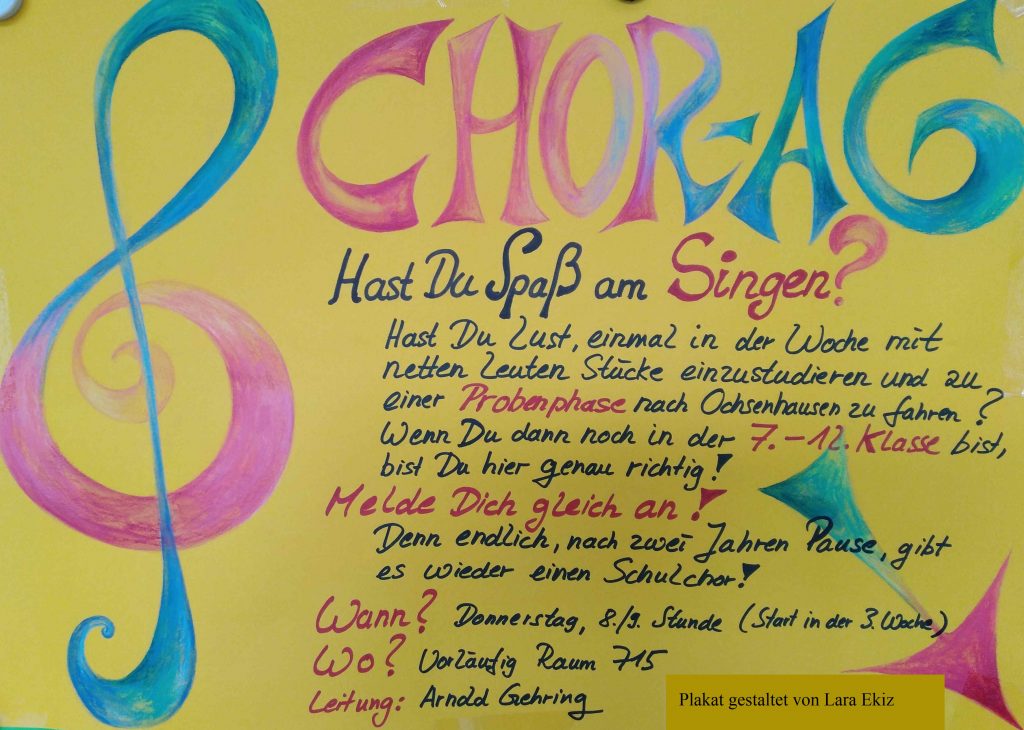 CHOR-AG
Hast Du Spaß am Singen?
Hast Du Lust, einmal in der Woche mit
netten Leuten Stücke einzustudieren und zu
einer Probenphase nach Ochsenhausen zu fahren?
Wenn Du dann noch in der 7.-12. Klasse bist,
bist Du hier genau richtig!
Melde Dich gleich an!
Denn endlich, nach zwei Jahren Pause, gibt
es wieder einen Schulchor!
Wann? Donnerstag, 8./9. Stunde (Start in der 3. Woche)
Wo? Vorläufig Raum 715
Leitung: Arnold Gehring
Plakat gestaltet von Lara Ekiz